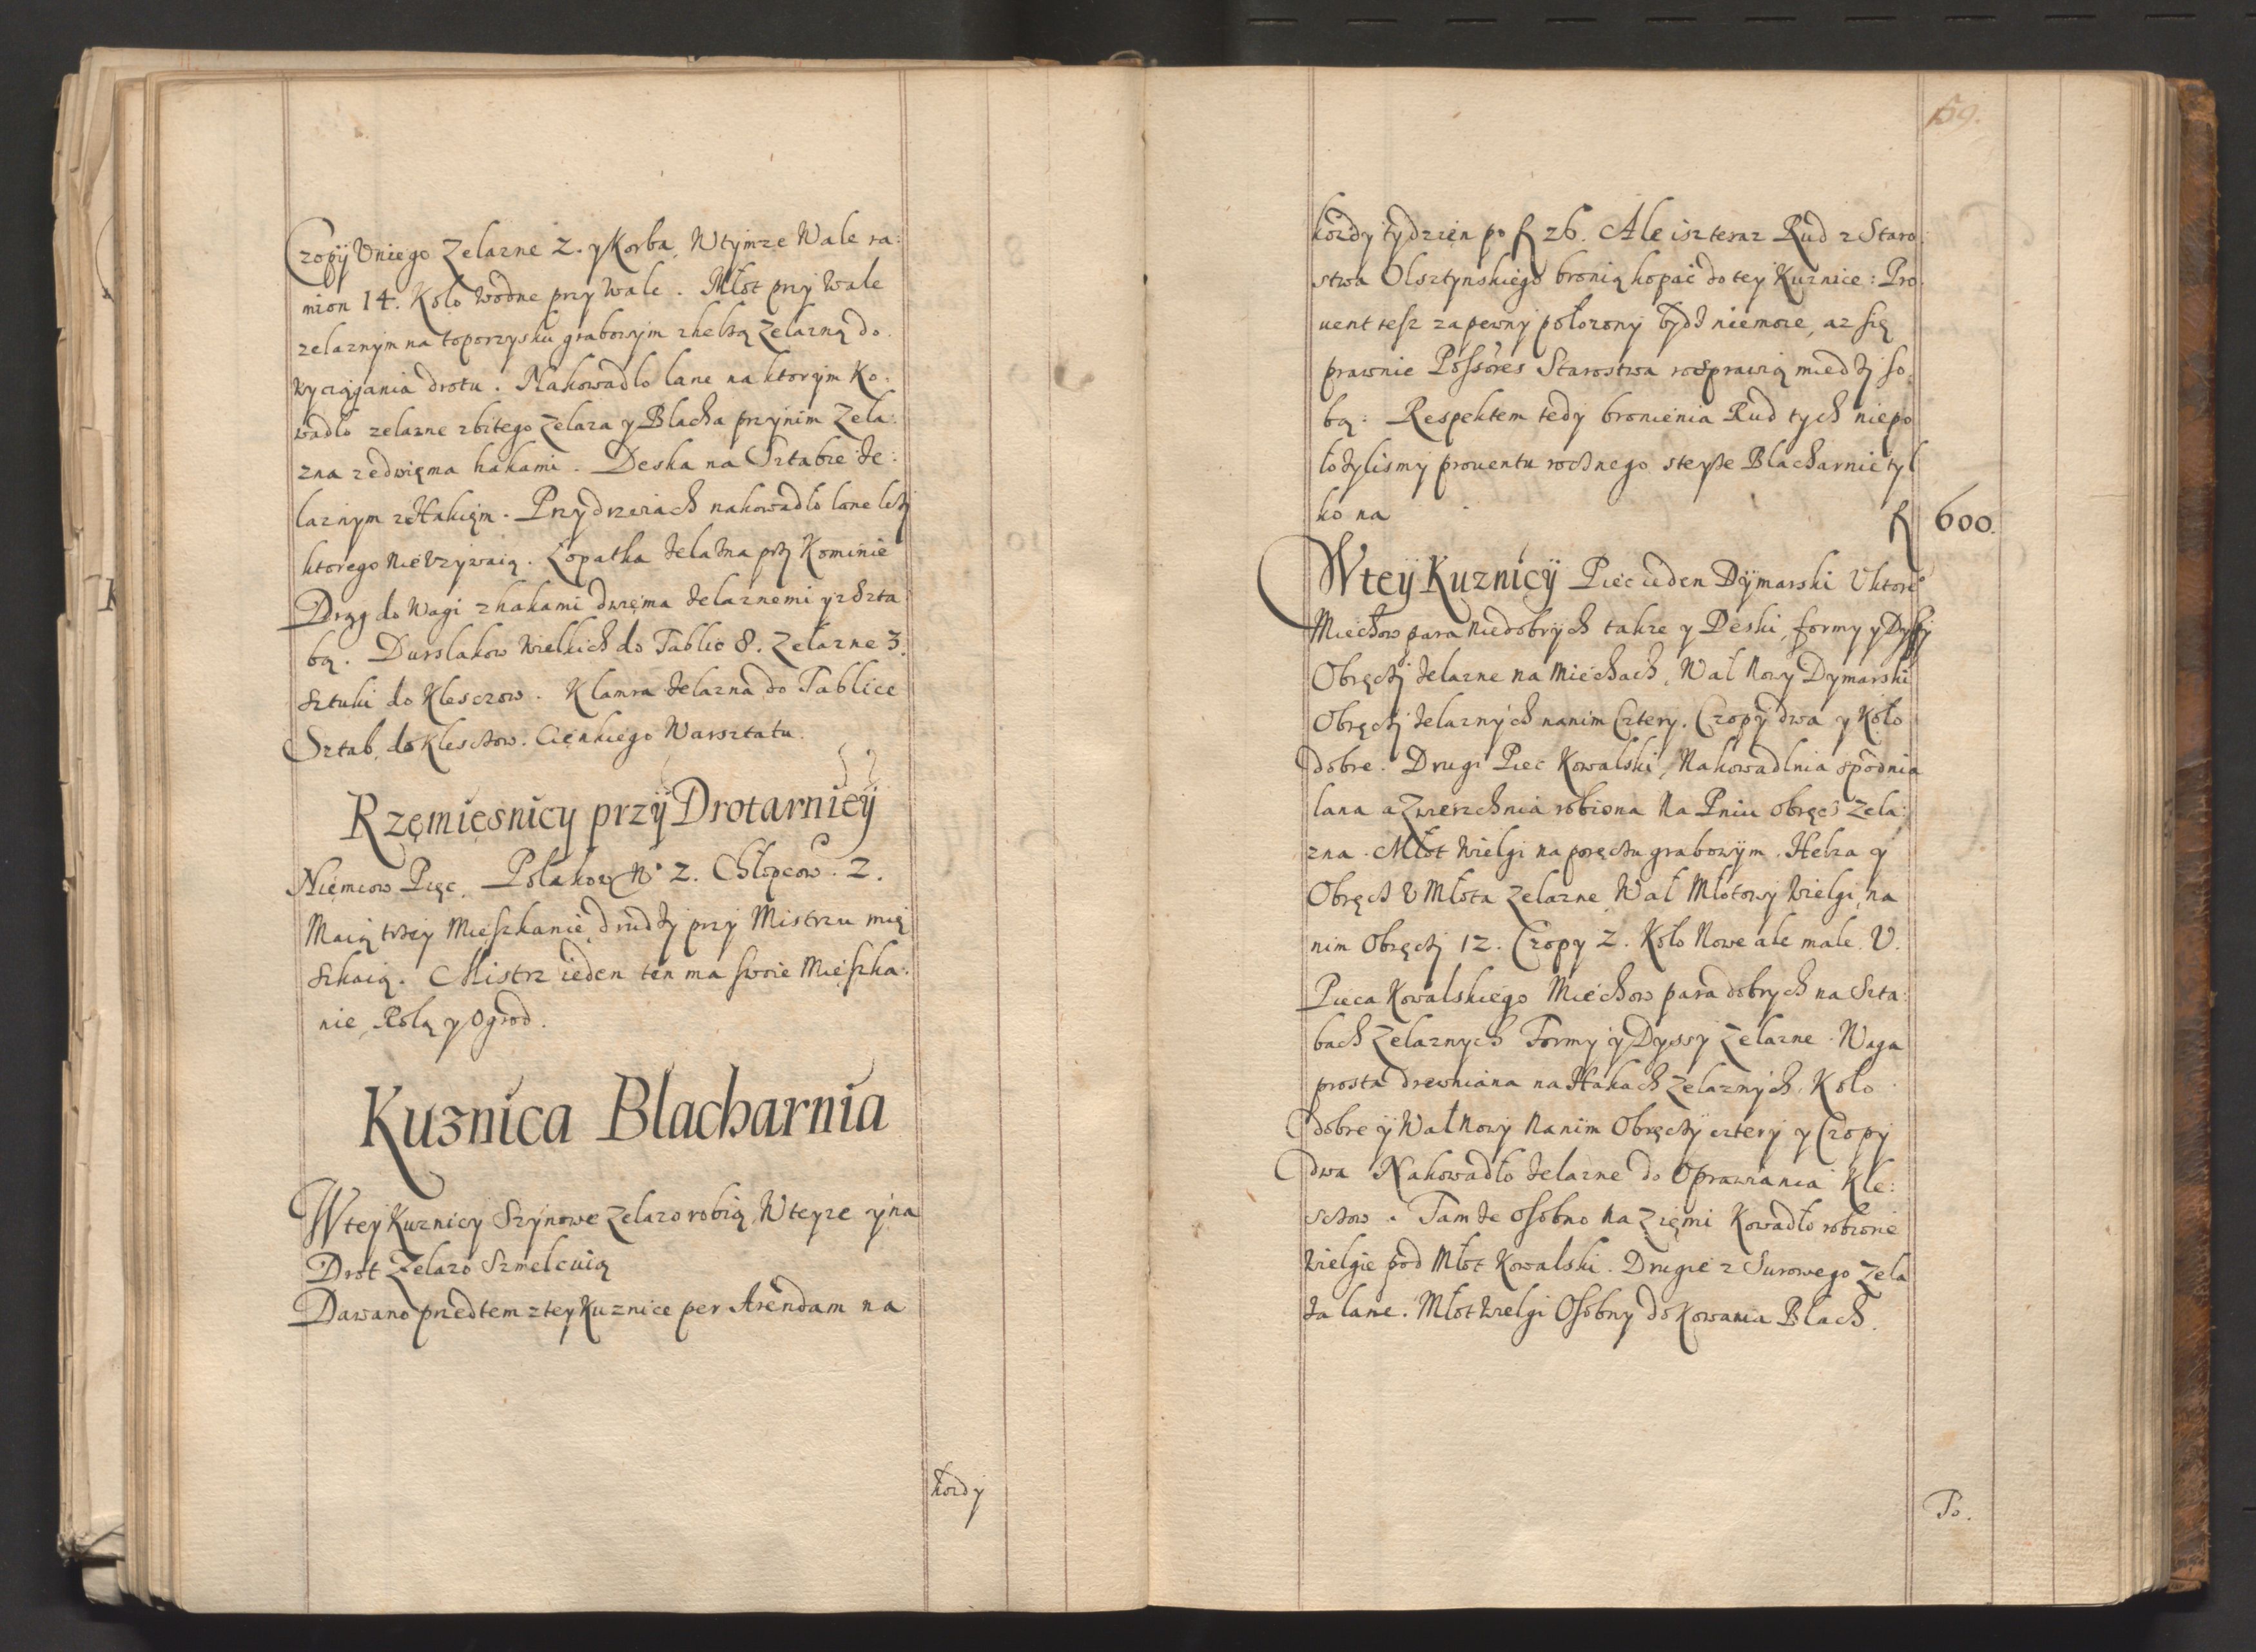 Czopÿ Vniego Zelazne 2. y Korba, Wtÿmze Wale ra:
mion 14. Koło Wodne przy Wale. Młot przy Wale
zelaznym na toporzysku grabowym zhelzą Zelazną do.
Wyciągania drotu. Nakowadło lane na ktorym Ko.
wadło zelazne zbitego Zelaza y Blacha przynim Zela:
zna zedwięma hakami. Deska na Sztabie Ze:
laznym zHakięm. Przydrzwiach nakowadło lane leży
ktorego nieVzywaią. Łopatka Zelazna przy Kominie
Drąg do Wagi zhakami dwięma Zelaznemi yzSzta
bą. Durslakow Wielkich do Tablic 8. Zelazne 3.
Sztuki do Klesczow. Klamra Zelazna do Tablice
Sztab, do Kleschow. Cięnkiego Warsztatu.
Rzęmiesnicy przÿ Drotarnicÿ
Niemcow Pięc. Polakow No 2. Chłopcow. 2.
Maią trzey Mieszkanie drudzy przy Mistrzu mię
szkaią. Mistrz ieden ten ma swoie Mieszka:
nie, Rolą y Ogrod.
Kuznica Blacharnia
Wtey Kuznicy Szynowe zelazo robią, Wteyze yna
Drot Zelazo Szmelcuią
Dawano przedtem ztey Kuznice per Arendam na
kozdy
159.
kozdy tydzien po f 26. Ale isz teraz Rud z Staro
stwa Olsztynskiego bronią kopać do tey Kuznice: Pro
uent tesz zapewny położony bydz niemoze, az się
prawnie Possores Starostwa rozsprawią miedzy so
bą: Respektem tedy bronienia Rud tych niepo
łozylismy prouentu rocznego steyze Blacharnie tyl
ko na f 600.
Wteÿ Kuznicÿ Piec ieden Dÿmarski Vktore
Miechow para niedobrych takze y Deski, formy y Dyssy
Obręczy Zelazne na Miechach, Wał Nowy Dymarski
Obręczy zelaznych nanim Cztery. Czopy dwa y Koło
dobre. Drugi Piec Kowalski, Nakowadlnia spodnia
lana a Zwierzchnia robiona Na Pniu obręcz Zela:
zna. Młot Wielgi na poręczu grabowym. Helza y
Obręcz V Młota Zelazne. Wał Młotowy Wielgi, na
nim Obręczy 12. Czopy 2. Koło Nowe ale małe. V.
Pieca Kowalskiego Miechow para dobrych na Szta:
bach Zelaznych Formy y Dyssy Zelazne. Waga
prosta drewniana na Hakach Zelaznych. Koło
dobre y Wał Nowy Nanim Obręczy cztery y Czopy
dwa Nakowadło Zelazne do Oprawiania Kle:
sczow. Tamze osobno na Ziemi Kowadło robione
Wielgie pod Młot Kowalski. Drugie z Surowego Zela
za lane. Młot Wielgi Osobny do Kowania Blach.
To.